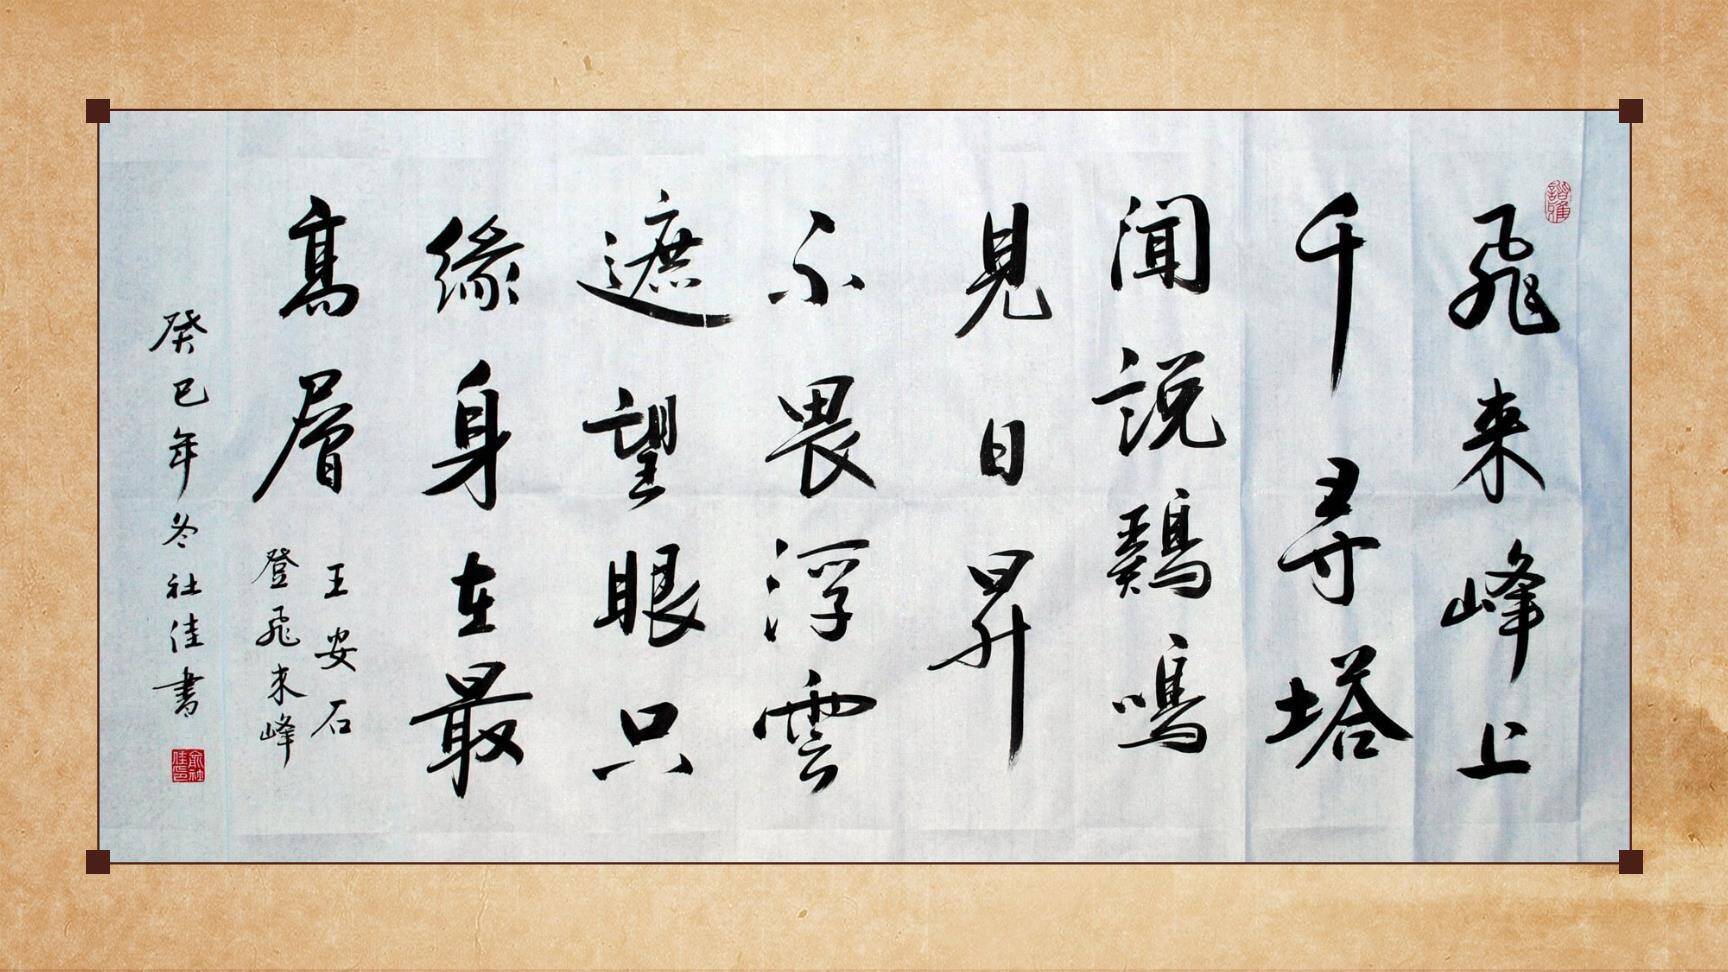 飛来峰上
千尋塔
闻説鷄鳴
見日昇
不畏浮雲
遮望眼只
緣身在最
髙層
王安石
登飛来峰
癸巳年冬社佳書